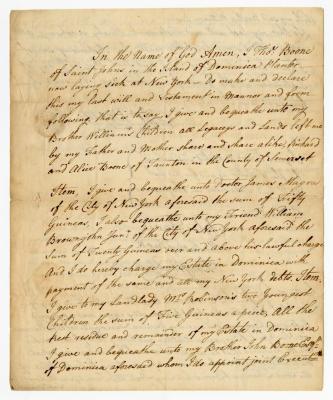 In the Name of God Amen, I Thos. Boone
of Saint Johns in the Island of Dominica Planter
now laying sick at New York do make and declare
this my last will and Testament in Manner and form
following that is to say I give and bequeathe unto my
Brother William's Children all Legacys and Lands left me
by my Father and Mother share and share alike, Richard
and Alice Boone of Taunton in the County of Somerset
Item, I give and bequeathe unto Doctor James Magra
of the City of New York aforesaid the sum of Fifty
Guineas, I also bequeathe unto my Friend William
Brownejohn Junr. of the City of New York aforesaid the
Sum of Twenty Guineas over and above his lawful charge
And I do hereby charge my Estate in Dominica with
payment of the same and all my New York debts. Item,
I give to my Landlady Mrs. Robinson's two Youngest
Children the sum of Five Guineas a piece, All the
rest residue and remainder of my Estate in Dominica
I give and bequeathe unto my Brother John Boone Esqr.
of Dominica aforesaid whom I do appoint joint